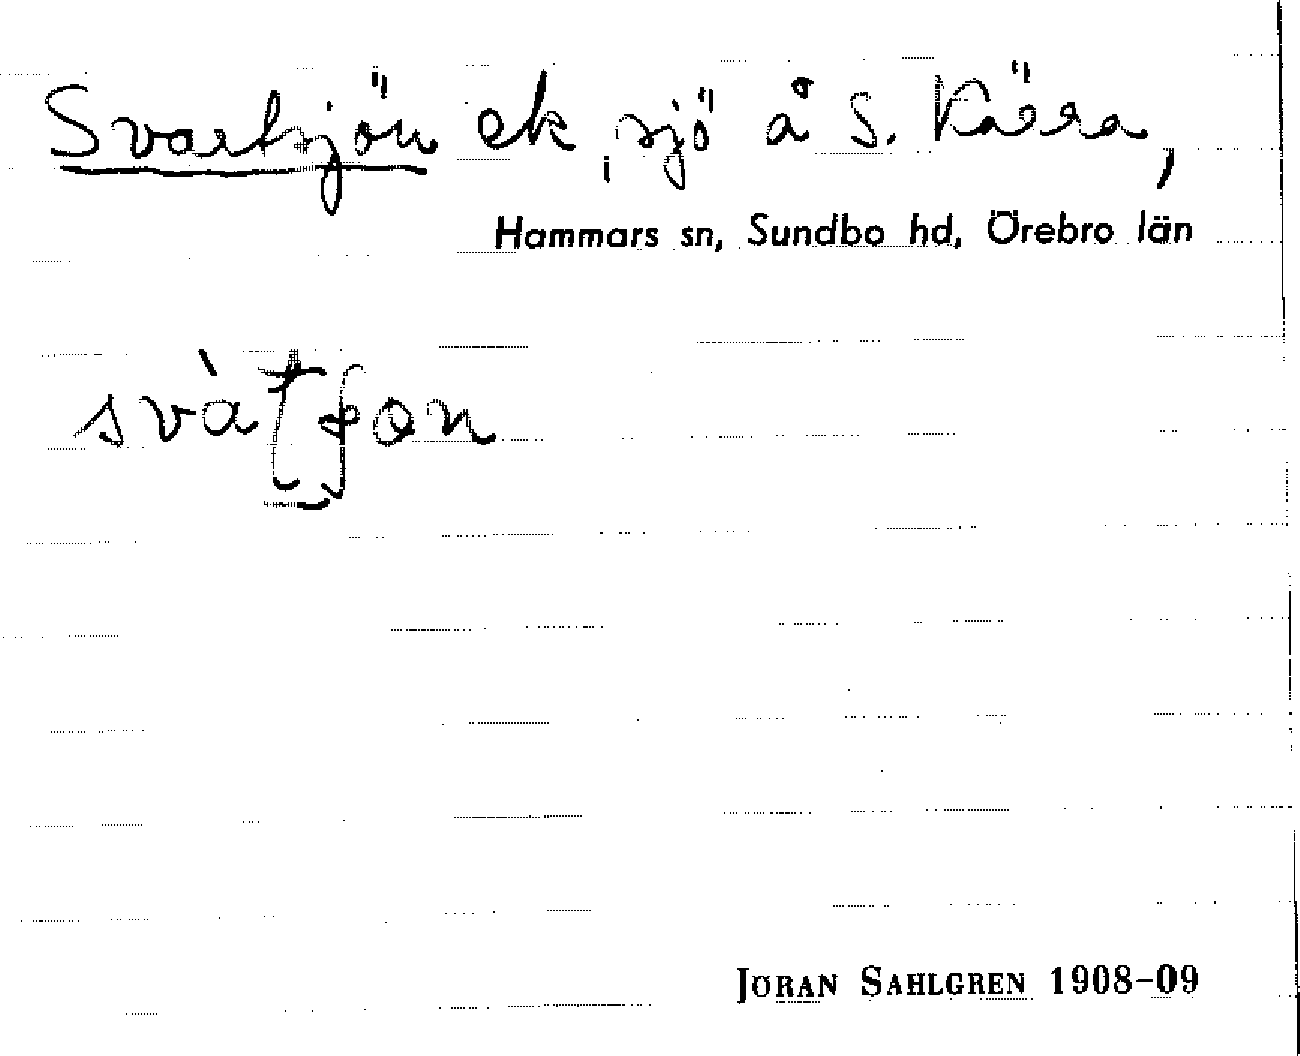 Svartsjön ek, sjö å S. Kärra,
Hammars sn, Sundbo hd, Örebro län
JORAN SAHLGREN 1908-09